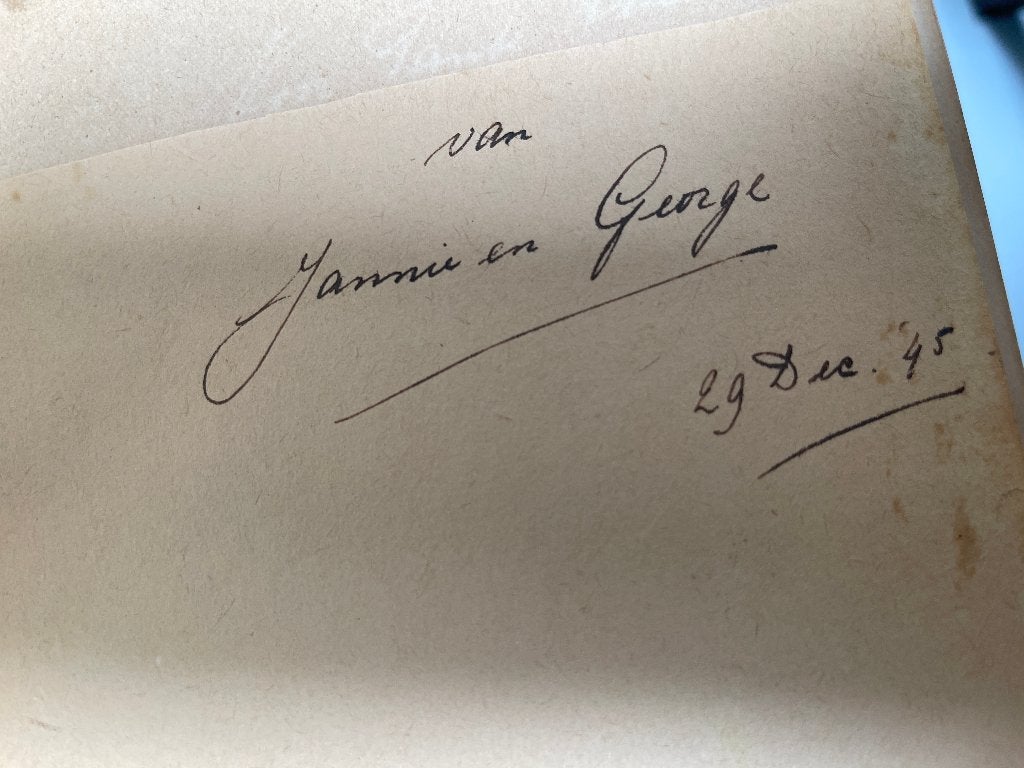 van
Jannie en George
29 Dec. '45